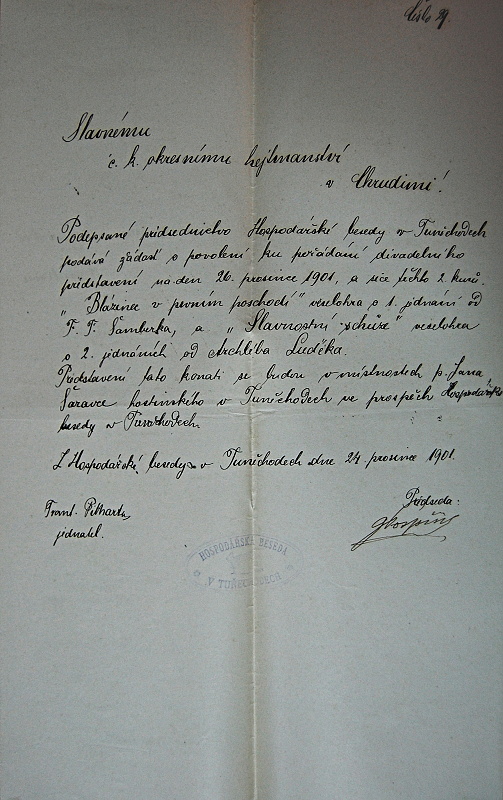 Číslo 29.
Slavnému
c. k. okresnímu hejtmanství
v Chrudimi!
Podepsané předsednictvo Hospodářské besedy v Tuněchodech
podává žádost o povolení ku pořádání divadelního
představení na den 26. prosince 1901, a sice těchto 2. kusů.
„Blázinec v prvním poschodí" veselohra o 1. jednání od
F. F. Šamberka, a „Slavnostní schůze" veselohra
o 2. jednáních od Archleba Luděka.
Představení tato konati se budou v místnostech p. Jana
Šaravce hostinského v Tuněchodech ve prospěch Hospodářské
besedy v Tuněchodech.
Z Hospodářské besedy v Tuněchodech dne 24. prosince 1901.
Předseda:
Frant.
jednatel.
HOSPODÁŘSKÁ BESEDA
V TUNĚCHODECH